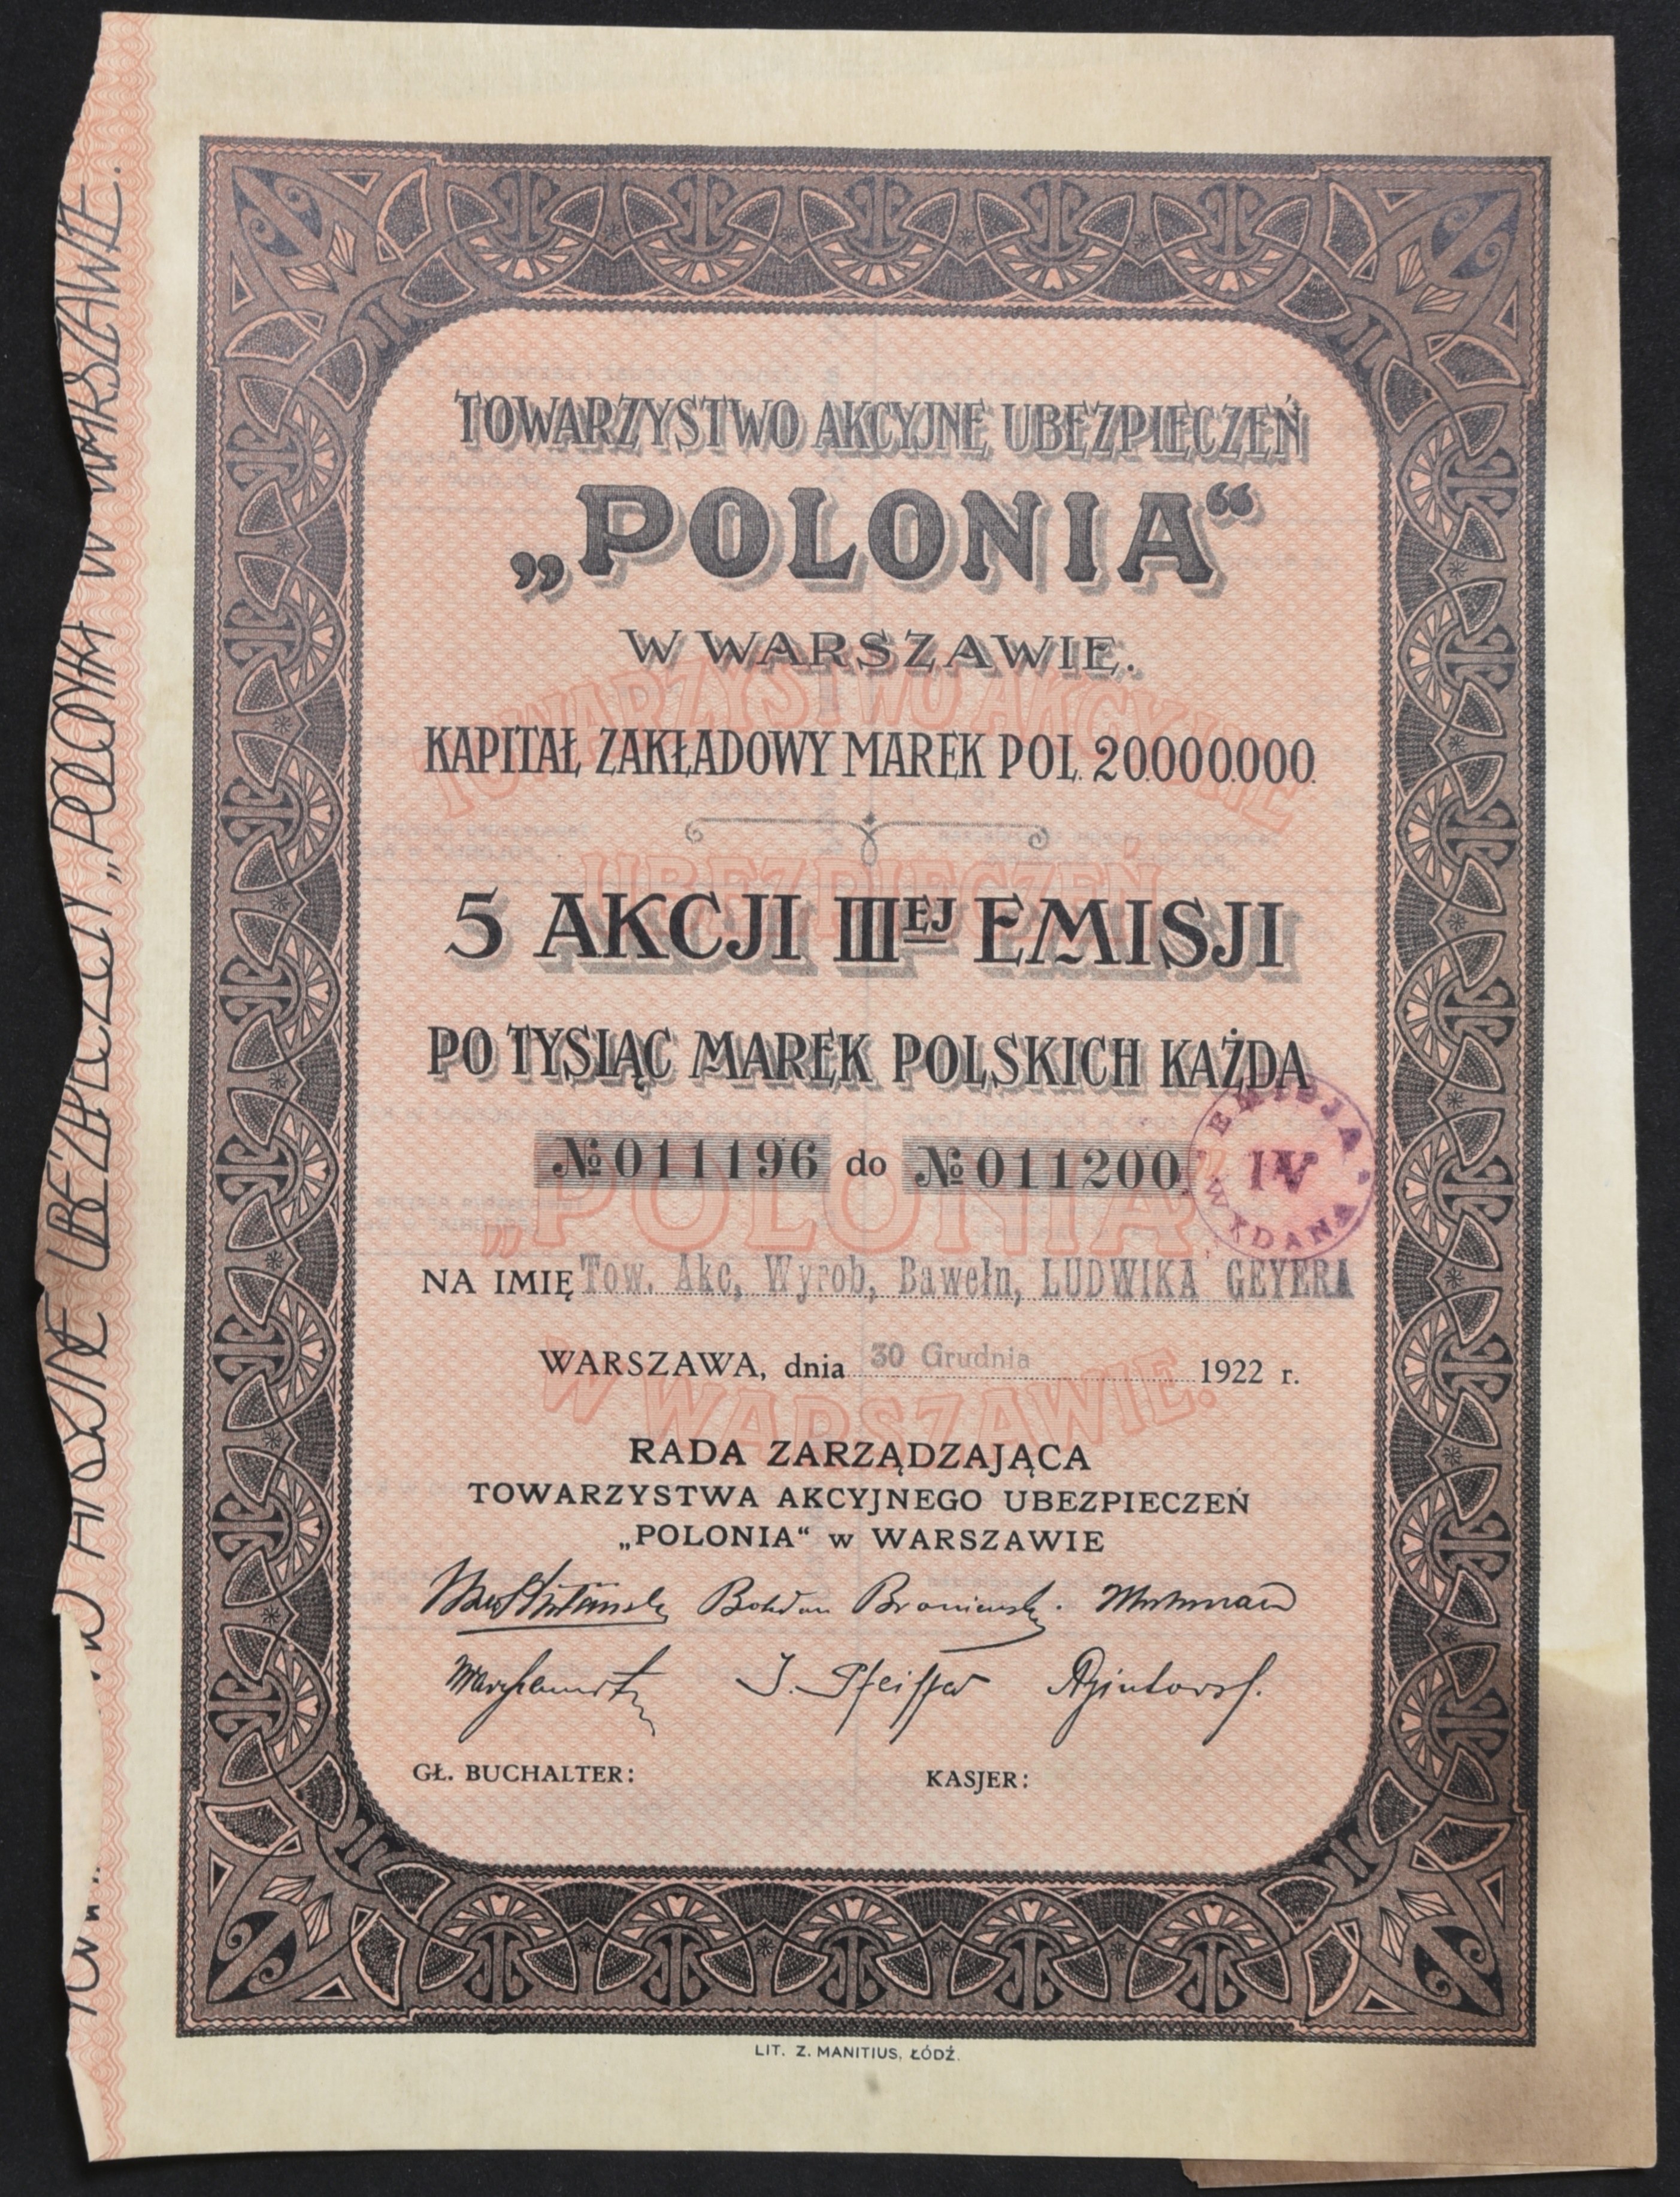 TOWARZYSTWO AKCYJNE UBEZPIECZEŃ
„POLONIA“
W WARSZAWIE.
KAPITAŁ ZAKŁADOWY MAREK POL. 20.000.000.
5 AKCJI IIIEJ EMISJI
PO TYSIĄC MAREK POLSKICH KAŻDA
№ 011196 do № 011200
EMISJA
IV
WYDANA
NA IMIĘ Tow. Akc, Wyrob, Bawełn, LUDWIKA GEYERA
WARSZAWA, dnia 30 Grudnia 1922 r.
RADA ZARZĄDZAJĄCA
TOWARZYSTWA AKCYJNEGO UBEZPIECZEŃ
„POLONIA“ w WARSZAWIE
Bohdan Broniewski.
J. Pfeiffer
GŁ. BUCHALTER: KASJER:
LIT. Z. MANITIUS, ŁÓDŹ.
TOWARZYSTWO AKCYJNE
UBEZPIECZEŃ
„POLONIA
W WARSZAWIE.
AKCYJNE UBEZPIECZEŃ „POLONIA" W WARSZAWIE.